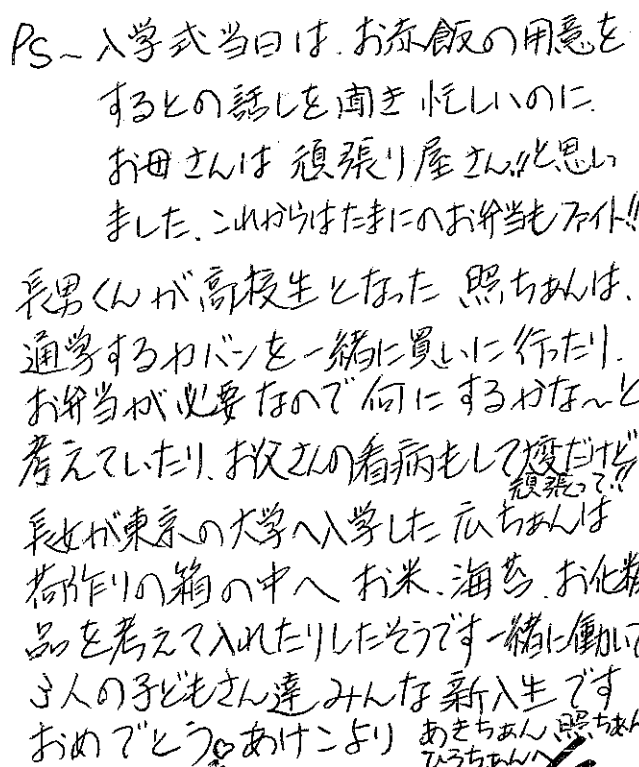 PS~入学式当日は、お赤飯の用意を
するとの話しを聞き忙しいのに、
お母さんは頑張り屋さん!!と思い
ました、これからはたまにのお弁当もファイト!!
長男くんが高校生となった照ちゃんは、
通学するカバンを一緒に買いに行ったり、
お弁当が必要なので何にするかな~と
考えていたり、お父さんの看病もして大変だけど
頑張って!!
長女が東京の大学へ入学した広ちゃんは
荷作りの箱の中へお米、海苔、お化粧
品を考えて入れたりしたそうです一緒に働いて
3人の子どもさん達みんな新入生です
おめでとう♡あけこより あきちゃん照ちゃん
ひろちゃんへ